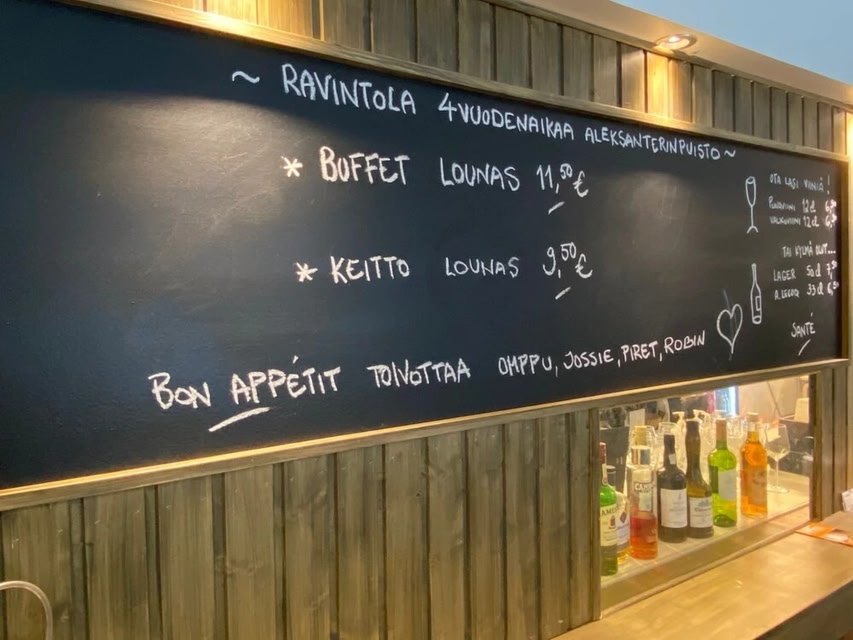 ~ RAVINTOLA 4VUODENAIKAA ALEKSANTERINPUISTO ~
* BUFFET LOUNAS 11,50€
* KEITTO LOUNAS 9,50€
BON APPÉTIT TOIVOTTAA OMPPU, JOSSIE, PIRET, ROBIN
OTA LASI VIINIÄ!
PUNAVIINI 12 cl
VALKOVIINI 12 cl
TAI KYLMÄ OLUT...
LAGER 50 cl
A.LECOQ 33 cl
SANTÉ